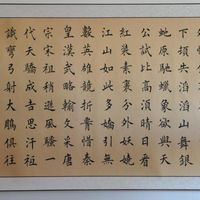 下頓失滔滔山舞銀
蛇原馳蠟象欲與天
公試比高須晴日看
紅裝素裹分外妖嬈
江山如此多嬌引無
數英雄競折腰惜秦
皇漢武略輸文采唐
宗宋祖稍遜風騷一
代天驕成吉思汗祗
識彎弓射大鵰俱往